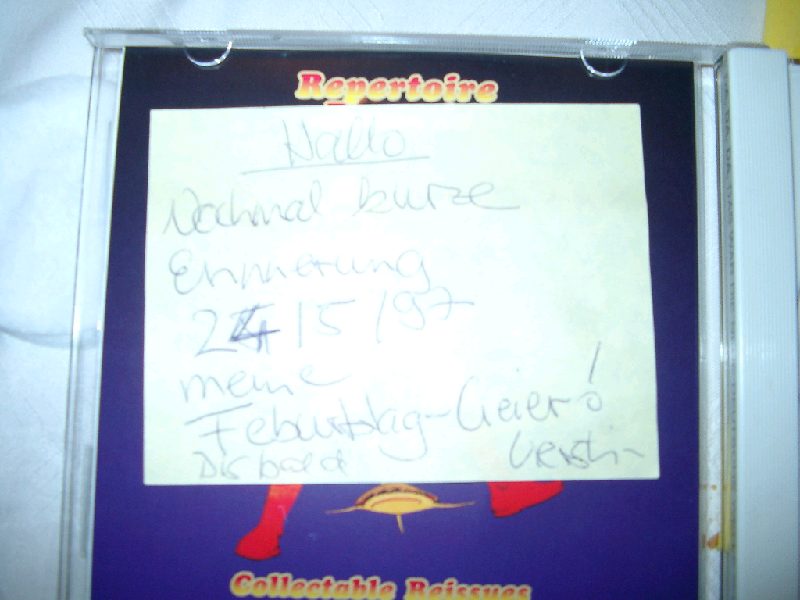 Repertoire
Hallo
Nochmal kurze
Erinnerung
24/5/97
meine
Feburtstag-Geier!
Bis bald Kerstin
Collectable Reissues